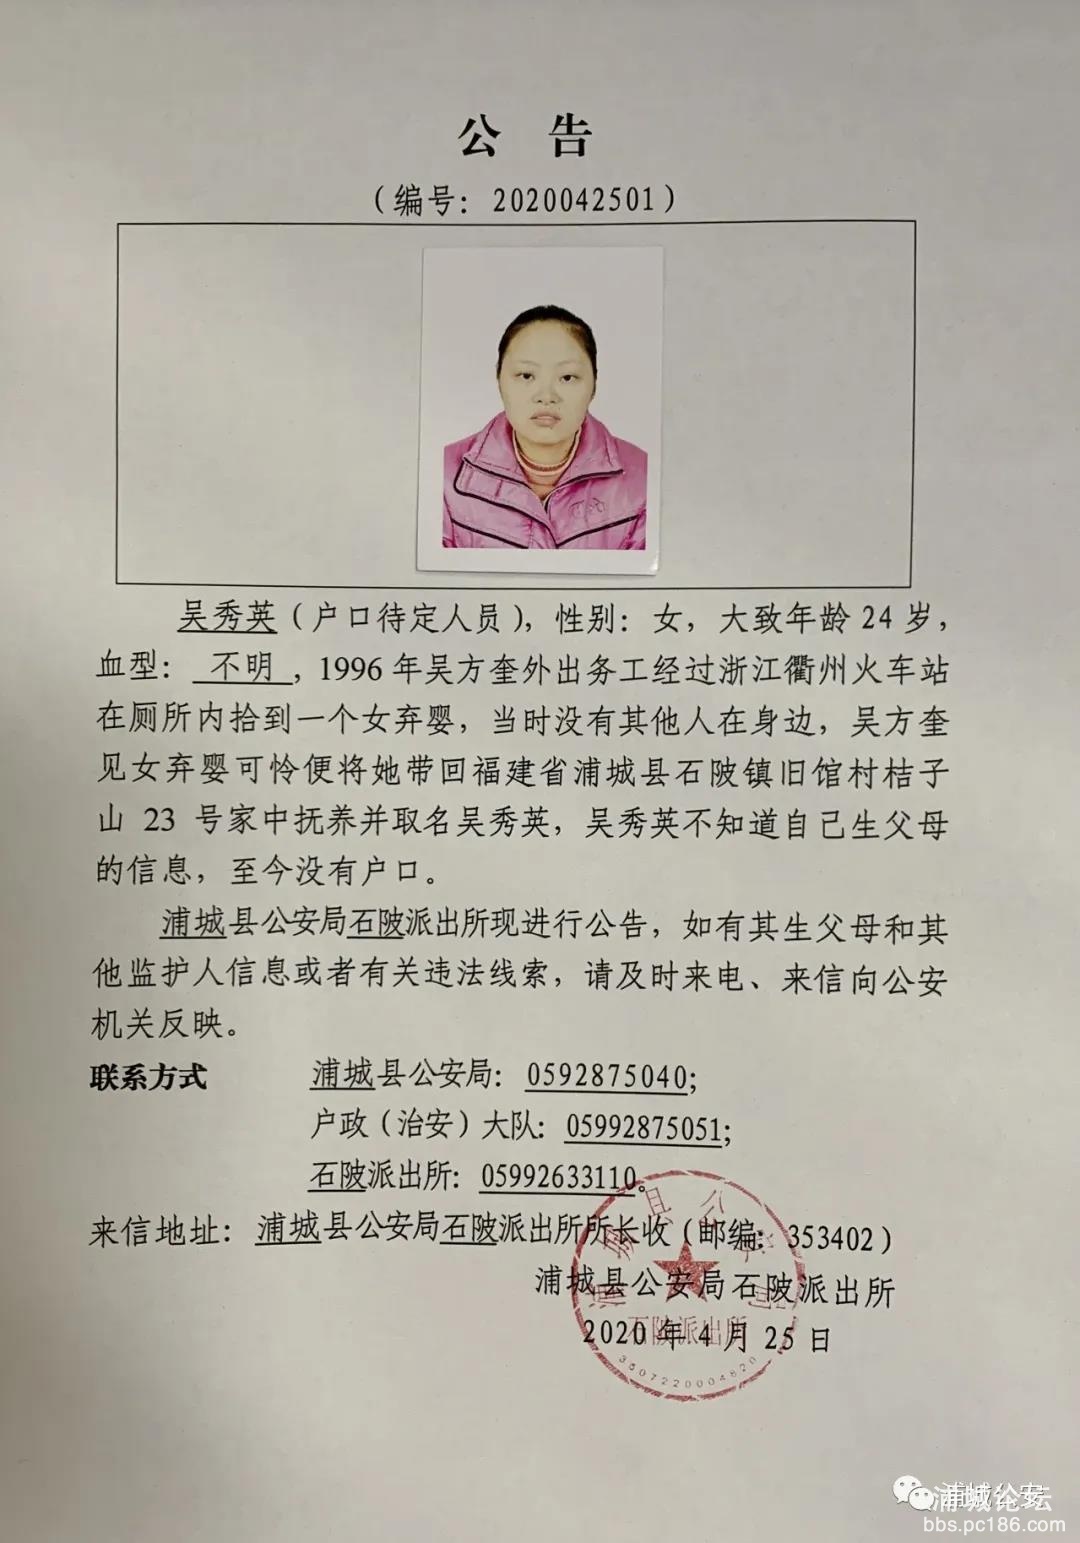 公 告
（编号：2020042501）
吴秀英（户口待定人员），性别：女，大致年龄 24 岁，
血型： 不明 ，1996 年吴方奎外出务工经过浙江衢州火车站
在厕所内拾到一个女弃婴，当时没有其他人在身边，吴方奎
见女弃婴可怜便将她带回福建省浦城县石陂镇旧馆村桔子
山 23 号家中抚养并取名吴秀英，吴秀英不知道自己生父母
的信息，至今没有户口。
浦城县公安局石陂派出所现进行公告，如有其生父母和其
他监护人信息或者有关违法线索，请及时来电、来信向公安
机关反映。
联系方式 浦城县公安局：0592875040;
户政（治安）大队：05992875051;
石陂派出所：05992633110。
来信地址：浦城县公安局石陂派出所所长收（邮编：353402）
浦城县公安局石陂派出所
2020 年 4 月 25 日
浦城县公安局
石陂派出所
3507220004820
浦城公安
浦城论坛
bbs.pc186.com